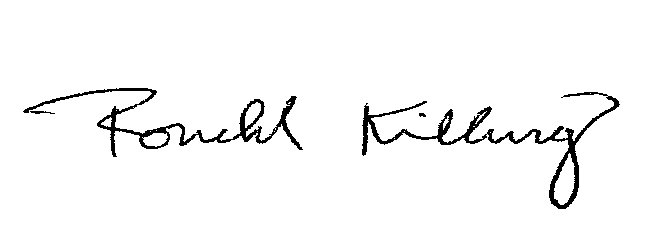 Ronald Killurg